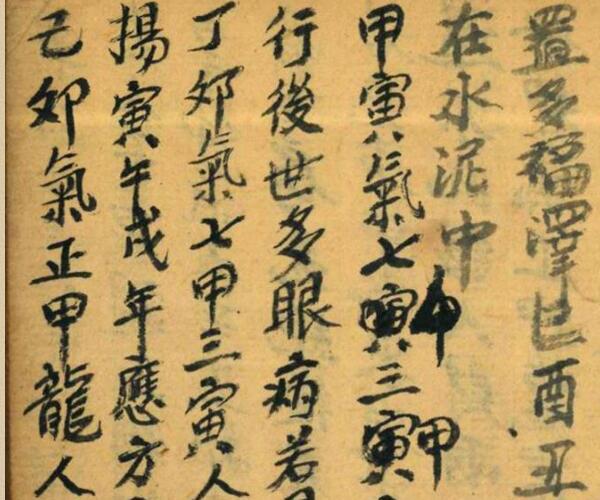 置多福澤巳酉丑
在水泥中
甲寅氣七甲三甲
行後世多眼病若
丁卯氣七甲三寅人
揚寅午戌年應方
己卯氣正甲龍人